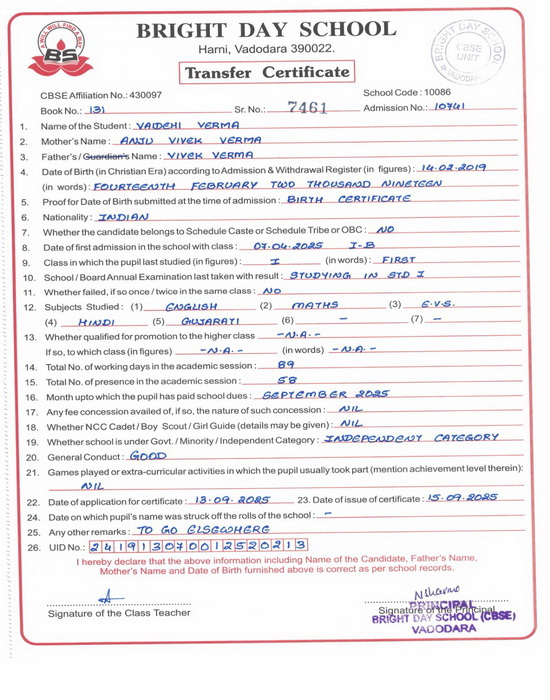 A WILL WILL FIND A WAY
BS
BRIGHT DAY SCHOOL
Harni, Vadodara 390022.
BRIGHT DAY SCHOOL
CBSE
UNIT
VADODARA
Transfer Certificate
CBSE Affiliation No.: 430097 School Code : 10086
Book No.: 131 Sr. No.: 7461 Admission No.: 10741
1. Name of the Student : VAIDEHI VERMA
2. Mother's Name : ANJU VIVEK VERMA
3. Father's / Guardian's Name : VIVEK VERMA
4. Date of Birth (in Christian Era) according to Admission & Withdrawal Register (in figures) : 14-02-2019
(in words) : FOURTEENTH FEBRUARY TWO THOUSAND NINETEEN
5. Proof for Date of Birth submitted at the time of admission : BIRTH CERTIFICATE
6. Nationality : INDIAN
7. Whether the candidate belongs to Schedule Caste or Schedule Tribe or OBC : NO
8. Date of first admission in the school with class : 07-04-2025 I-B
9. Class in which the pupil last studied (in figures) : I (in words) : FIRST
10. School / Board Annual Examination last taken with result : STUDYING IN STD I
11. Whether failed, if so once / twice in the same class : NO
12. Subjects Studied : (1) ENGLISH (2) MATHS (3) E.V.S.
(4) HINDI (5) GUJARATI (6) - (7) -
13. Whether qualified for promotion to the higher class -N.A.-
If so, to which class (in figures) -N.A.- (in words) -N.A.-
14. Total No. of working days in the academic session : 89
15. Total No. of presence in the academic session : 58
16. Month upto which the pupil has paid school dues : SEPTEMBER 2025
17. Any fee concession availed of, if so, the nature of such concession : NIL
18. Whether NCC Cadet / Boy Scout / Girl Guide (details may be given) : NIL
19. Whether school is under Govt. / Minority / Independent Category : INDEPENDENT CATEGORY
20. General Conduct : GOOD
21. Games played or extra-curricular activities in which the pupil usually took part (mention achievement level therein):
NIL
22. Date of application for certificate : 13-09-2025 23. Date of issue of certificate : 15-09-2025
24. Date on which pupil's name was struck off the rolls of the school : -
25. Any other remarks : TO GO ELSEWHERE
26. UID No.: 241913070012520213
I hereby declare that the above information including Name of the Candidate, Father's Name,
Mother's Name and Date of Birth furnished above is correct as per school records.
Signature of the Class Teacher Signature of the Principal
PRINCIPAL
BRIGHT DAY SCHOOL (CBSE)
VADODARA